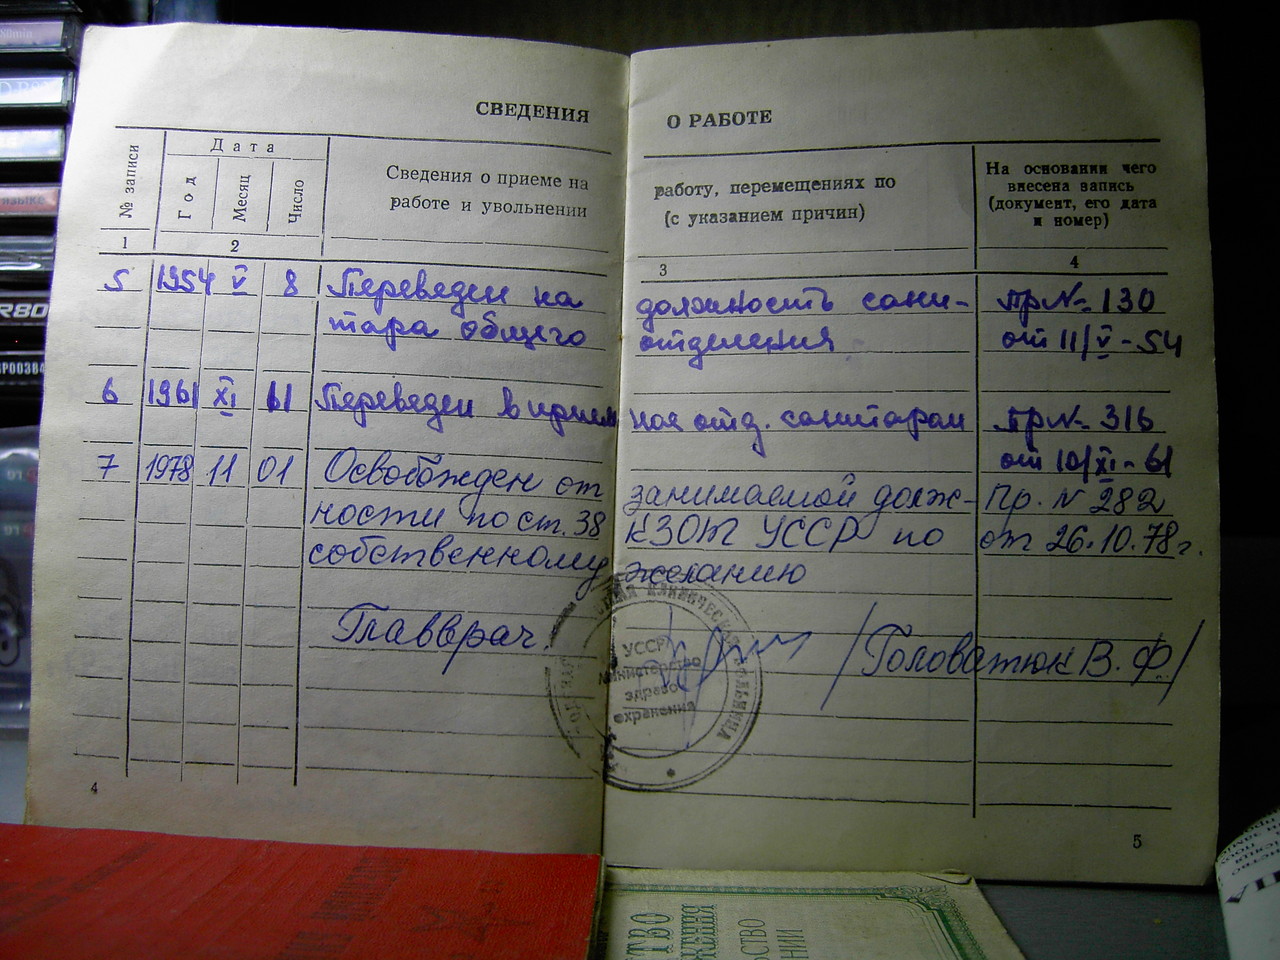 СВЕДЕНИЯ О РАБОТЕ
№ записи
Дата
Год
Месяц
Число
Сведения о приеме на работу, перемещениях по
работе и увольнении (с указанием причин)
На основании чего
внесена запись
(документ, его дата
и номер)
1 2 3 4
5 1954 V 8 Переведен на должность сани- Пр № 130
тара общего отделения от 11/V-54
6 1961 XI 11 Переведен в прием ное отд. санитаром Пр № 316
от 10/XI-61
7 1978 11 01 Освобожден от занимаемой долж- Пр. N 282
ности по ст. 38 КЗОТ УССР по от 26.10.78г.
собственному желанию
Главврач. /Головатюк В. Ф./
УССР
Министерство
здраво
охранения
КЛИНИЧЕСКАЯ БОЛЬНИЦА
4
5